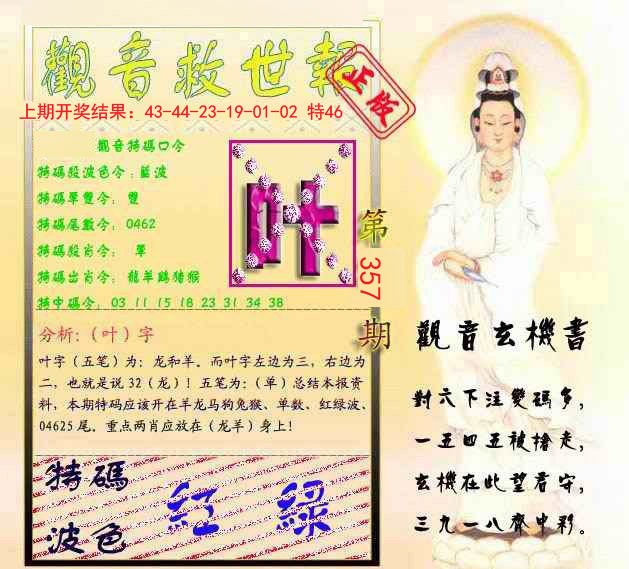 觀音救世報
正版
上期开奖结果：43-44-23-19-01-02 特46
觀音特碼口令
特碼段波色令：藍波
特碼單雙令： 雙
特碼尾數令： 0462
特碼段肖令： 單
特碼出肖令： 龍羊鷄猪猴
特中碼令： 03 11 15 18 23 31 34 38
叶
第357期
分析：（叶）字
叶字（五笔）为：龙和羊。而叶字左边为三，右边为
二，也就是说 32（龙）！五笔为：（单）总结本报资
料，本期特码应该开在羊龙马狗兔猴、单数、红绿波、
04625 尾。重点两肖应放在（龙羊）身上！
特碼
波色
紅 綠
觀音玄機書
對六下注變碼多，
一五四五被搶走，
玄機在此望看守，
三九一八齊中彩。